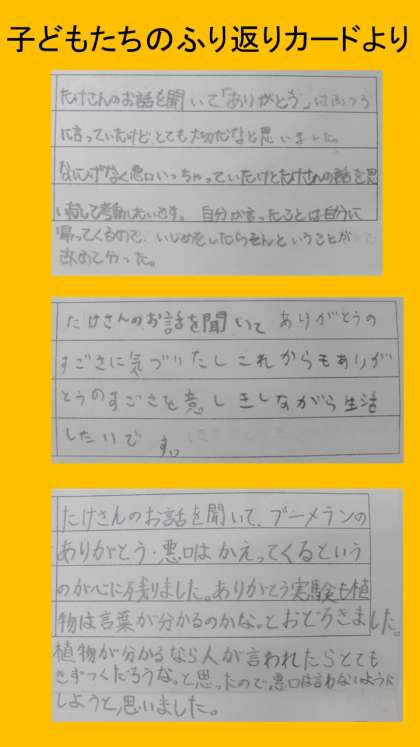 子どもたちのふり返りカードより
たけさんのお話を聞いて「ありがとう」はふつう
に言っていたけど、とても大切だなと思いました。
なにげなく悪口いっちゃっていたけどたけさんの話を思
して考動したいです。自分が言ったことは自分に
帰ってくるので、いじめをしたらそんということが
改めて分った。
たけさんのお話を聞いて ありがとうの
すごさに気づいたしこれからもありが
とうのすごさを意しきしながら生活
したいです。
たけさんのお話を聞いて、ブーメランの
ありがとう・悪口はかえってくるという
のが心に残りました。ありがとう実験も植
物は言葉が分かるのかな。とおどろきました。
植物が分かるなら人が言われたらとても
きずつくだろうな。と思ったので悪口は言わないように
しようと思いました。